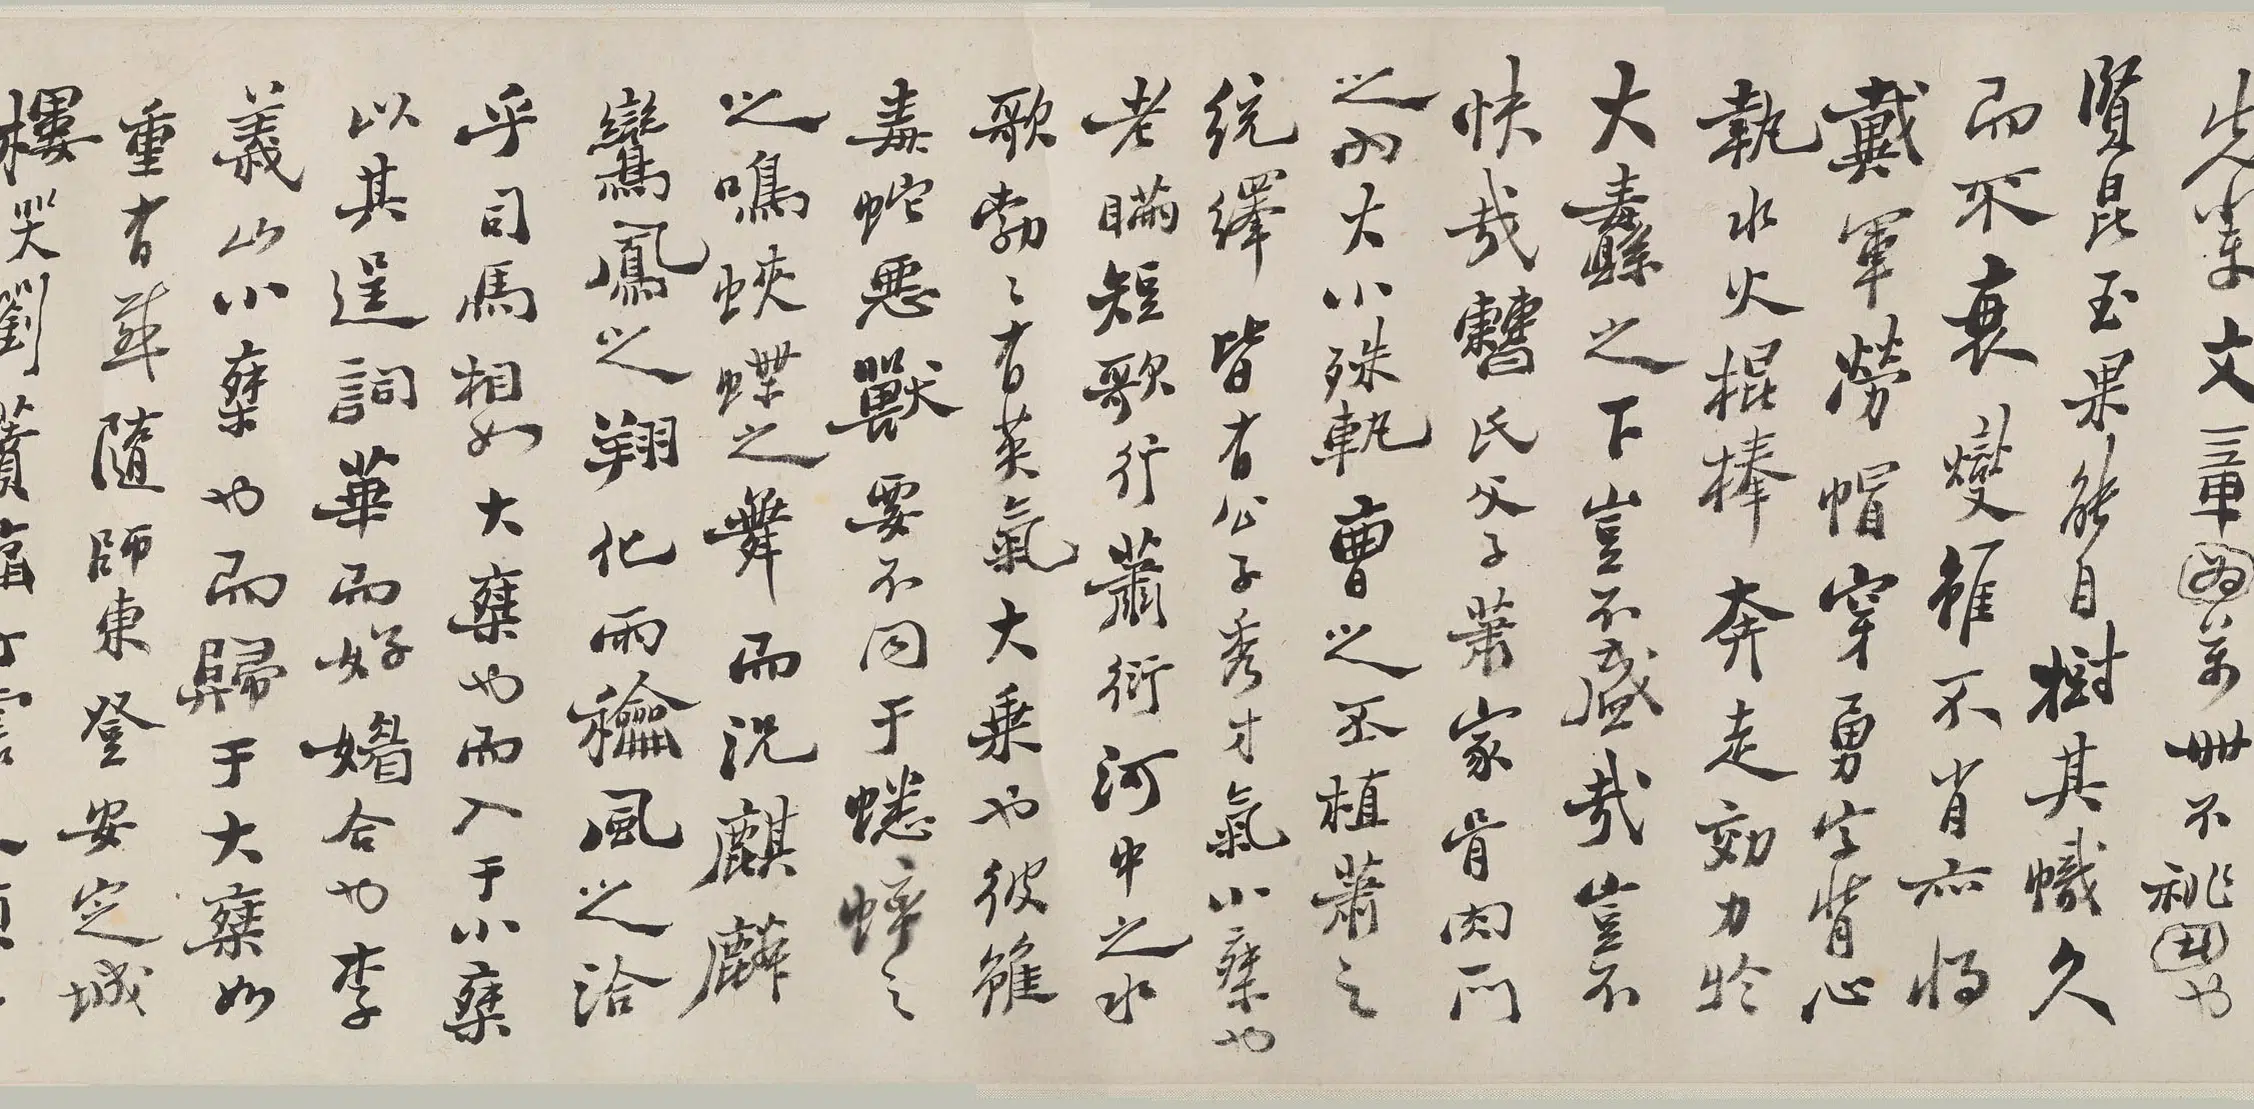 先輩文章為萬世不祧也
賢昆玉果能自樹其幟久
而不衰燮雖不肖亦將
戴軍勞帽穿勇字背心
執水火棍棒奔走效力於
大纛之下豈不盛哉豈不
快哉曹氏父子蕭家骨肉一門
之內大小殊軌曹之丕植蕭之
統繹皆有公子秀才氣小乘也
老瞞短歌行蕭衍河中之水
歌勃〻有英氣大乘也彼雖
毒蛇惡獸要不同于蟋蟀之
之鳴蛺蝶之舞而況麒麟
鸞鳳之翔化雨龢風之洽
乎司馬相如大乘也而入于小乘
以其逞詞華而好媚合也李
義山小乘也而歸于大乘如
重有感隨師東登安定城
樓哭劉蕡